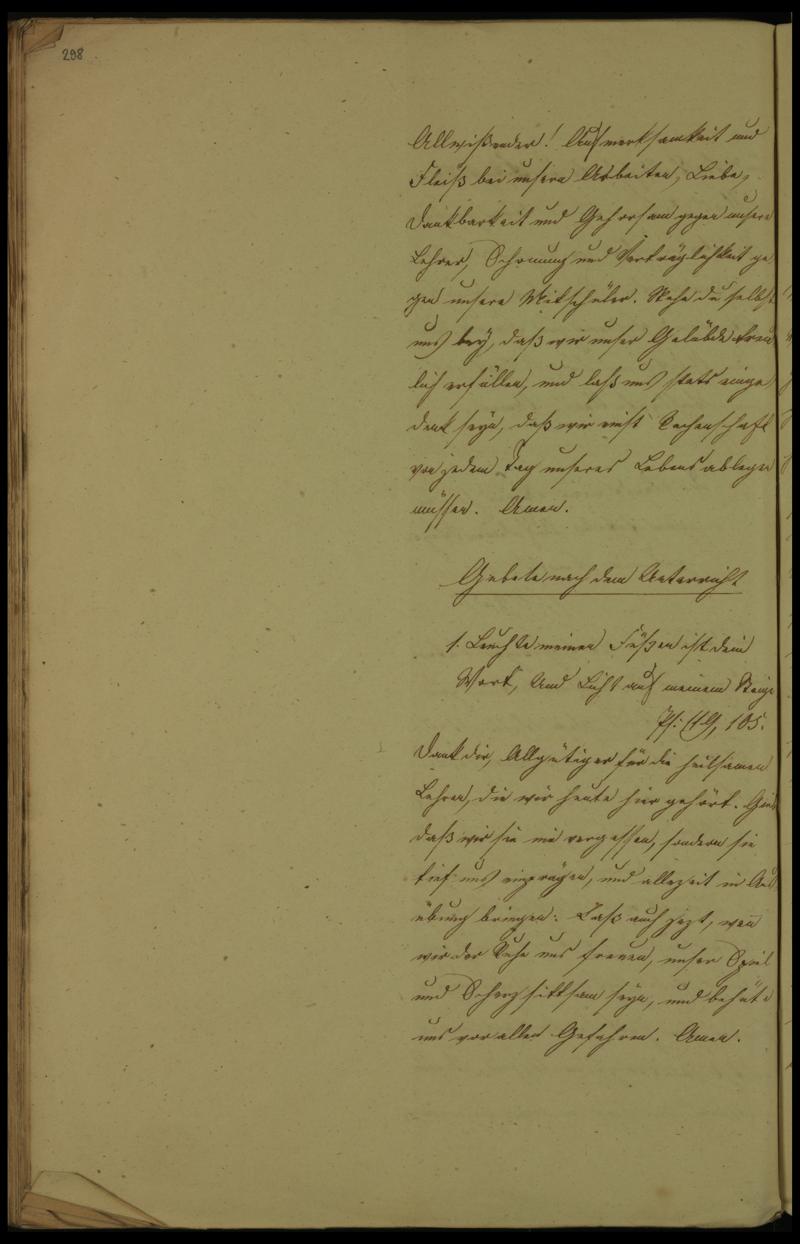 298
Allwißender! Aufmerksamkeit und
Fleiß bei unsern Arbeiten, Liebe,
Dankbarkeit und Gehorsam gegen unsere
Lehrer, Schonung und Verträglichkeit ge
gen unsere Mitschüler. Stehe du selbst
uns bey, daß wir unser Gelübde treu
lich erfüllen, und laß uns stets einge
denk seyn, daß wir einst Rechenschaft
von jedem Tag unseres Lebens ablegen
müssen. Amen.
Gebete nach dem Unterricht
1. Leuchte meinen Füßen ist dein
Wort, Und Licht auf meinem Steige
Ps: 119, 105.
Dank dir, Allgütiger für die heilsamen
Lehren, die wir heute hier gehört. Gieb
daß wir sie nie vergessen, sondern sie
tief uns einprägen, und allezeit in Aus
übung bringen. Laß auch jezt, wen̄
wir der Ruhe uns freuen, unser Spiel
und Scherz sittsam seyn, und behüte
uns vor allen Gefahren. Amen.